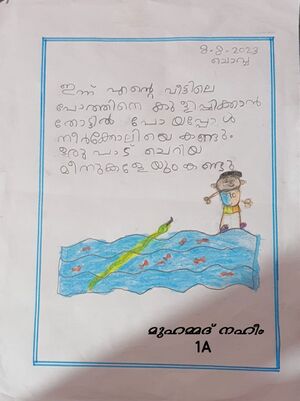 8-8-2023
ചൊവ്വ
ഇന്ന് എന്റെ വീട്ടിലെ
പോത്തിനെ കുളിപ്പിക്കാൻ
തോട്ടിൽ പോയപ്പോൾ
നീർക്കോലിയെ കണ്ടു.
ഒരുപാട് ചെറിയ
മീനുകളേയും കണ്ടു
മുഹമ്മദ് നഹീം
1A